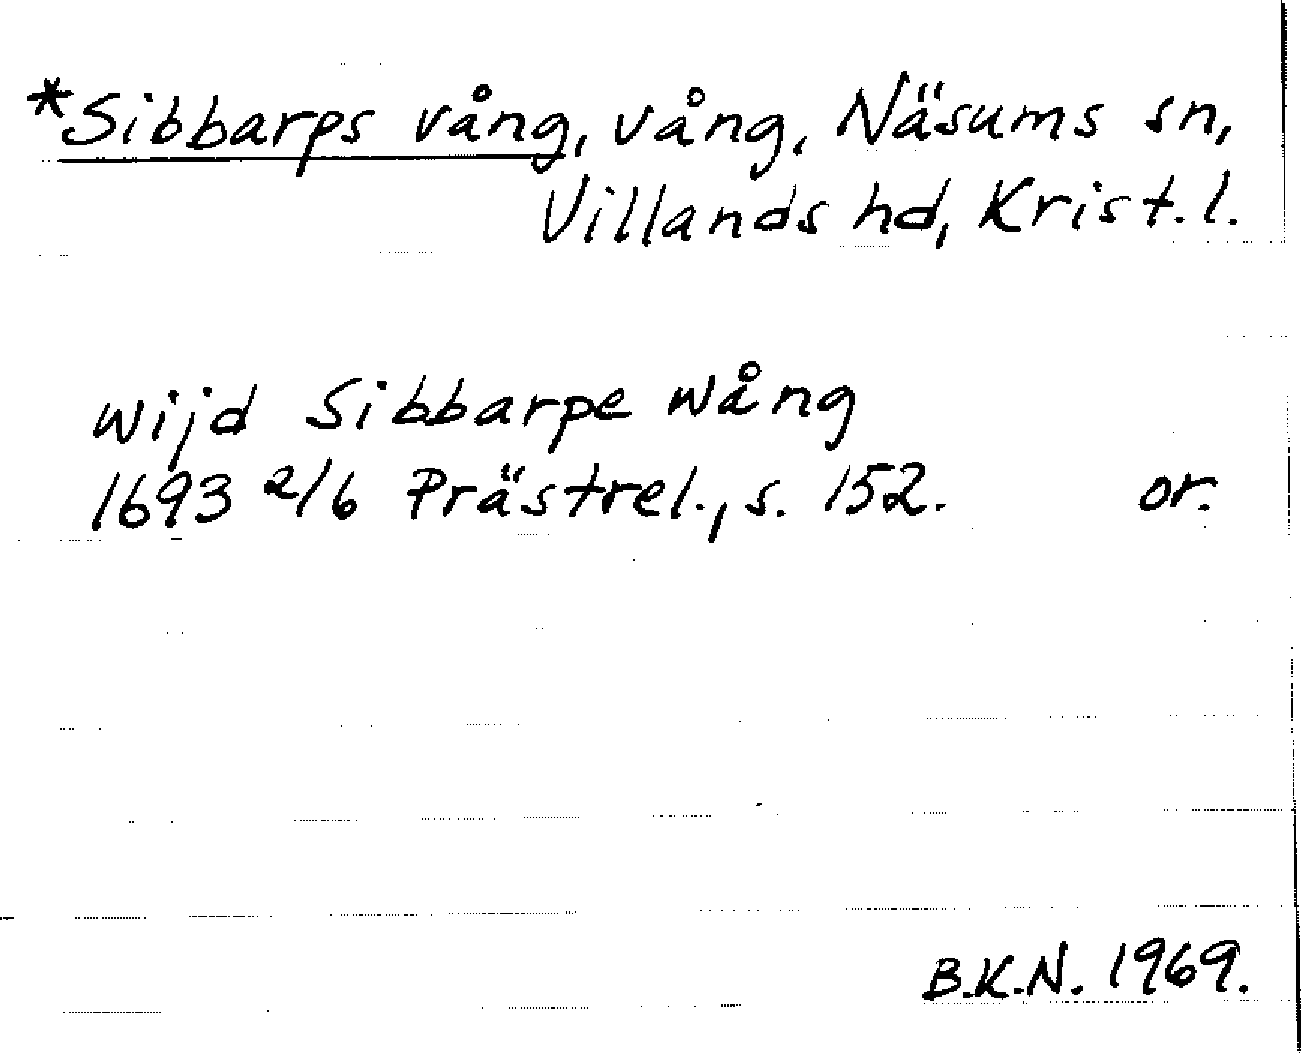 *Sibbarps vång, vång, Näsums sn,
Villands hd, Krist. l.
wijd Sibbarpe wång
1693 2/6 Prästrel., s. 152. or.
B.K.N. 1969.